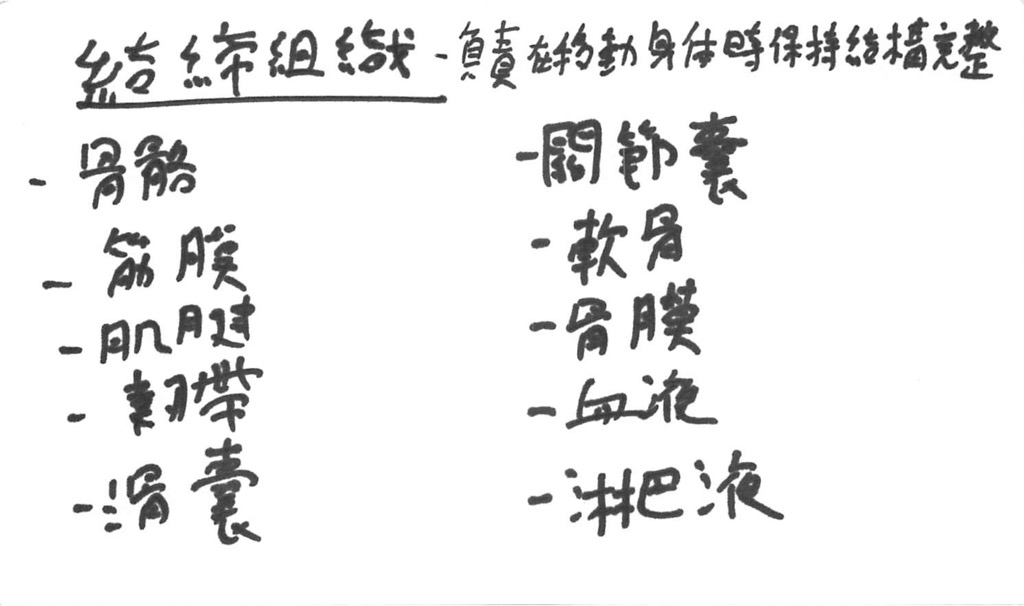 結締組織-負責在移動身体時保持結構完整
- 骨骼
- 筋膜
- 肌腱
- 韌帶
- 滑囊
- 關節囊
- 軟骨
- 骨膜
- 血液
- 淋巴液